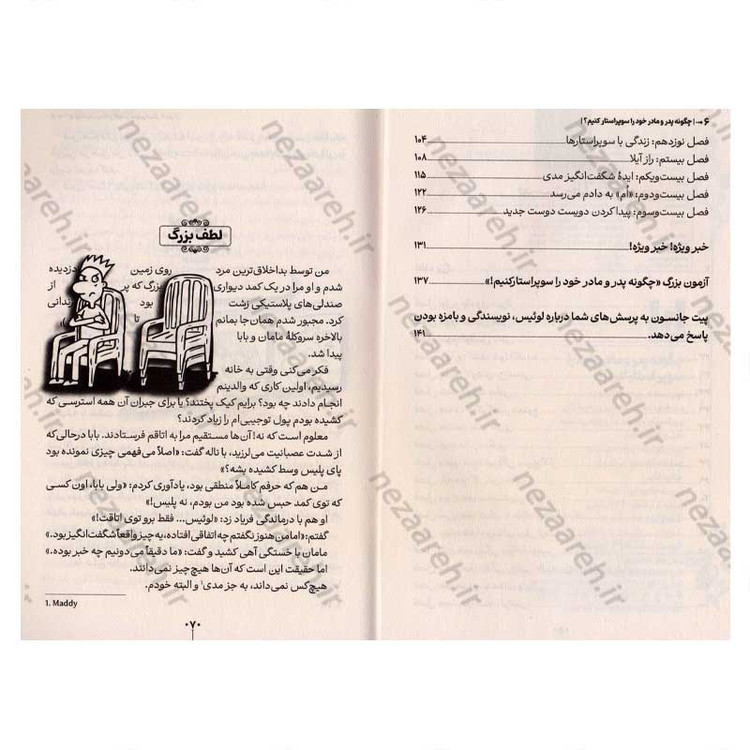 ۶ ⟶ | چگونه پدر و مادر خود را سوپراستار کنیم؟ |
فصل نوزدهم: زندگی با سوپراستارها ۱۰۴
فصل بیستم: راز آیلا ۱۰۸
فصل بیست‌ویکم: ایدهٔ شگفت‌انگیز مدی ۱۱۵
فصل بیست‌ودوم: «اُم» به دادم می‌رسد ۱۲۲
فصل بیست‌وسوم: پیدا کردن دویست دوست جدید ۱۲۶
خبر ویژه! خبر ویژه! ۱۳۱
آزمون بزرگ «چگونه پدر و مادر خود را سوپراستار کنیم!» ۱۳۷
پیت جانسون به پرسش‌های شما درباره لوئیس، نویسندگی و بامزه بودن
پاسخ می‌دهد. ۱۴۱
لطف بزرگ
من توسط بداخلاق‌ترین مرد روی زمین دزدیده
شدم و او مرا در یک کمد دیواری بزرگ که پر از
صندلی‌های پلاستیکی زشت بود زندانی
کرد. مجبور شدم همان‌جا بمانم تا
بالاخره سروکلهٔ مامان و بابا
پیدا شد.
فکر می‌کنی وقتی به خانه
رسیدیم، اولین کاری که والدینم
انجام دادند چه بود؟ برایم کیک پختند؟ یا برای جبران آن همه استرسی که
کشیده بودم پول توجیبی‌ام را زیاد کردند؟
معلوم است که نه! آن‌ها مستقیم مرا به اتاقم فرستادند. بابا درحالی‌که
از شدت عصبانیت می‌لرزید، با ناله گفت: «اصلاً می‌فهمی چیزی نمونده بود
پای پلیس وسط کشیده بشه؟»
من هم که حرفم کاملاً منطقی بود، یادآوری کردم: «ولی بابا، اون کسی
که توی کمد حبس شده بود من بودم، نه پلیس!»
او هم با درماندگی فریاد زد: «لوئیس... فقط برو توی اتاقت!»
گفتم: «اما من هنوز نگفتم چه اتفاقی افتاده، یه چیز واقعاً شگفت‌انگیز بود.»
مامان با خستگی آهی کشید و گفت: «ما دقیقاً می‌دونیم چه خبر بوده.»
اما حقیقت این است که آن‌ها هیچ چیز نمی‌دانند.
هیچ‌کس نمی‌داند، به جز مدی۱ و البته خودم.
1. Maddy
۰۷۰
nezaareh.ir